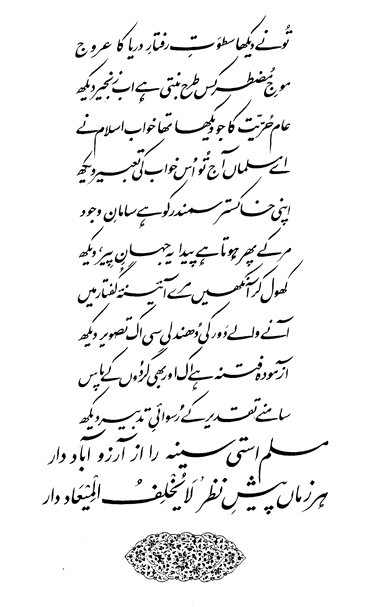 تُو نے دیکھا سطوَتِ رفتارِ دریا کا عروج
موجِ مُضطر کس طرح بنتی ہے اب زنجیر دیکھ
عام حُرّیت کا جو دیکھا تھا خواب اسلام نے
اے مسلماں آج تُو اُس خواب کی تعبیر دیکھ
اپنی خاکستر سمندر کو ہے سامانِ وجود
مر کے پھر ہوتا ہے پیدا یہ جہانِ پیر، دیکھ
کھول کر آنکھیں مرے آئینۂ گفتار میں
آنے والے دَور کی دُھندلی سی اک تصویر دیکھ
آزمودہ فتنہ ہے اک اور بھی گردُوں کے پاس
سامنے تقدیر کے رُسوائیِ تدبیر دیکھ
مسلم استی سینہ را از آرزو آباد دار
ہر زماں پیشِ نظر ’لَا یُخْلِفُ الْمِیْعَاد دار